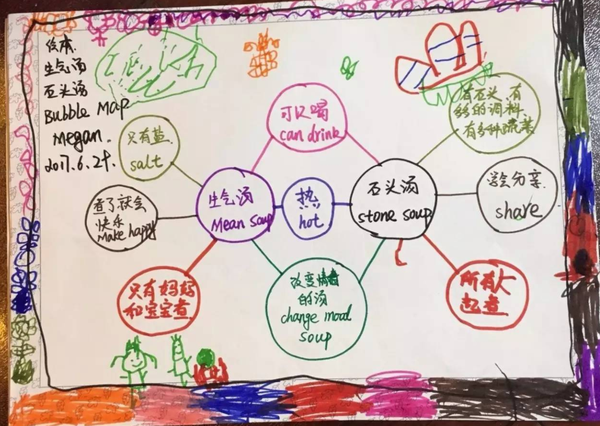 绘本.
生气汤
石头汤
Bubble Map
Megan.
只有盐.
salt
可以喝
can drink
有石头,有
的调料
有多种蔬菜
煮了就会
快乐
make happy
生气汤
Mean soup
热
hot
石头汤
stone soup
学会分享.
share
只有妈妈
和宝宝煮
改变情绪
的汤
change mood
soup
所有人
起煮